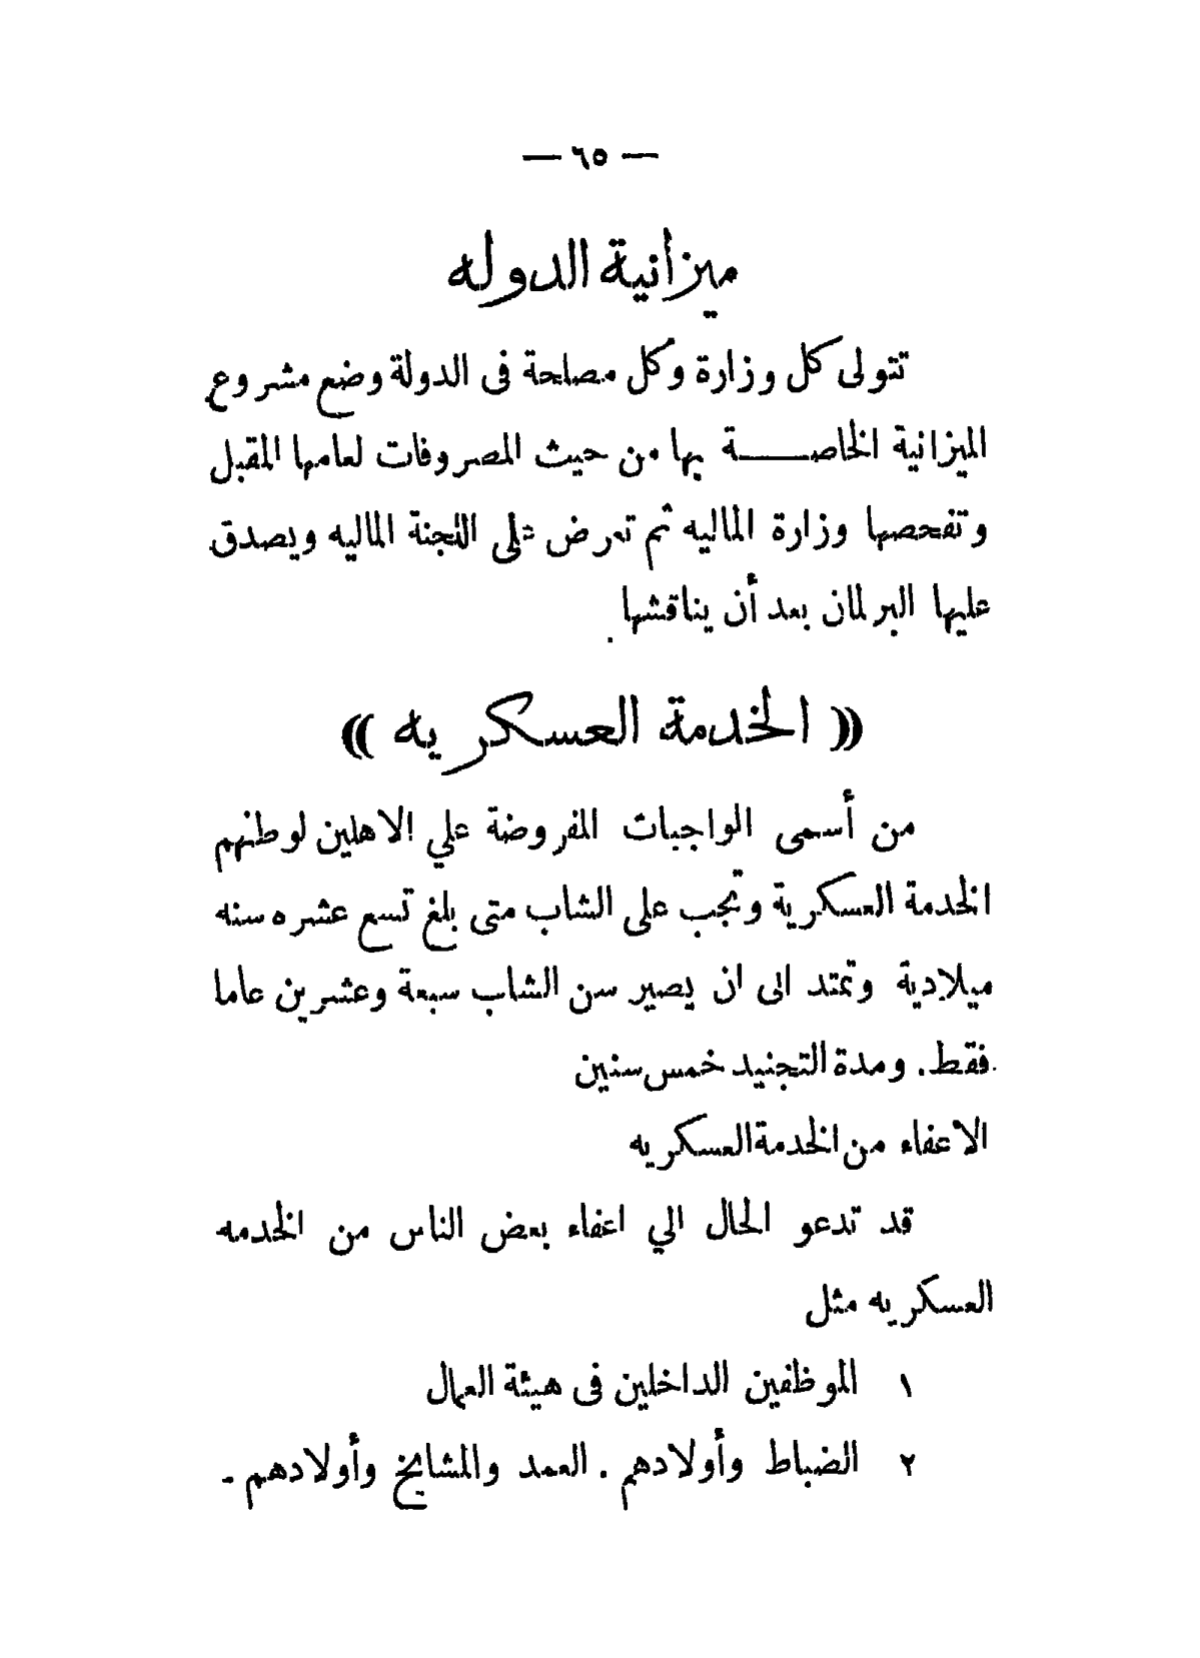 — ٦٥ —
ميزانية الدوله
تتولى كل وزارة وكل مصلحة فى الدولة وضع مشروع
الميزانية الخاصة بها من حيث المصروفات لعامها المقبل
وتفحصها وزارة الماليه ثم تعرض على اللجنة الماليه ويصدق
عليها البرلمان بعد أن يناقشها .
« الخدمة العسكريه »
من أسمى الواجبات المفروضة علي الاهلين لوطنهم
الخدمة العسكرية وتجب على الشاب متى بلغ تسع عشره سنه
ميلادية وتمتد الى ان يصير سن الشاب سبعة وعشرين عاما
فقط . ومدة التجنيد خمس سنين
الاعفاء من الخدمة العسكريه
قد تدعو الحال الي اعفاء بعض الناس من الخدمه
العسكريه مثل
١ الموظفين الداخلين فى هيئة العمال
٢ الضباط وأولادهم . العمد والمشايخ وأولادهم -